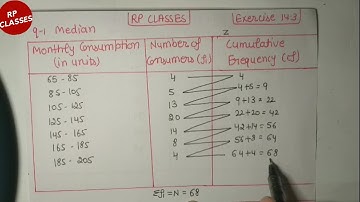 RP CLASSES
q-1 Median
RP CLASSES
Exercise 14.3
Monthly Consumption (in units) Number of Consumers (fi) Cumulative Frequency (cf)
65 - 85 4 4
85 - 105 5 4+5 = 9
105 - 125 13 9+13 = 22
125 - 145 20 22+20 = 42
145 - 165 14 42+14 = 56
165 - 185 8 56+8 = 64
185 - 205 4 64+4 = 68
Σfi = N = 68